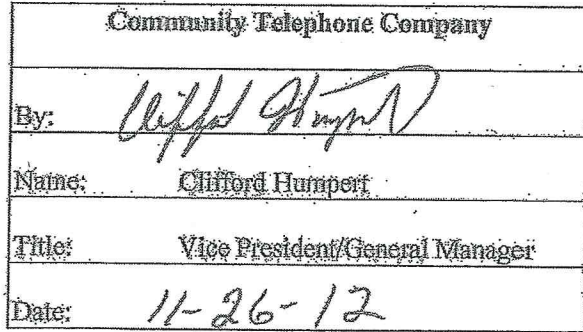 Community Telephone Company
By: Clifford Humpert
Name: Clifford Humpert
Title: Vice President/General Manager
Date: 11-26-12